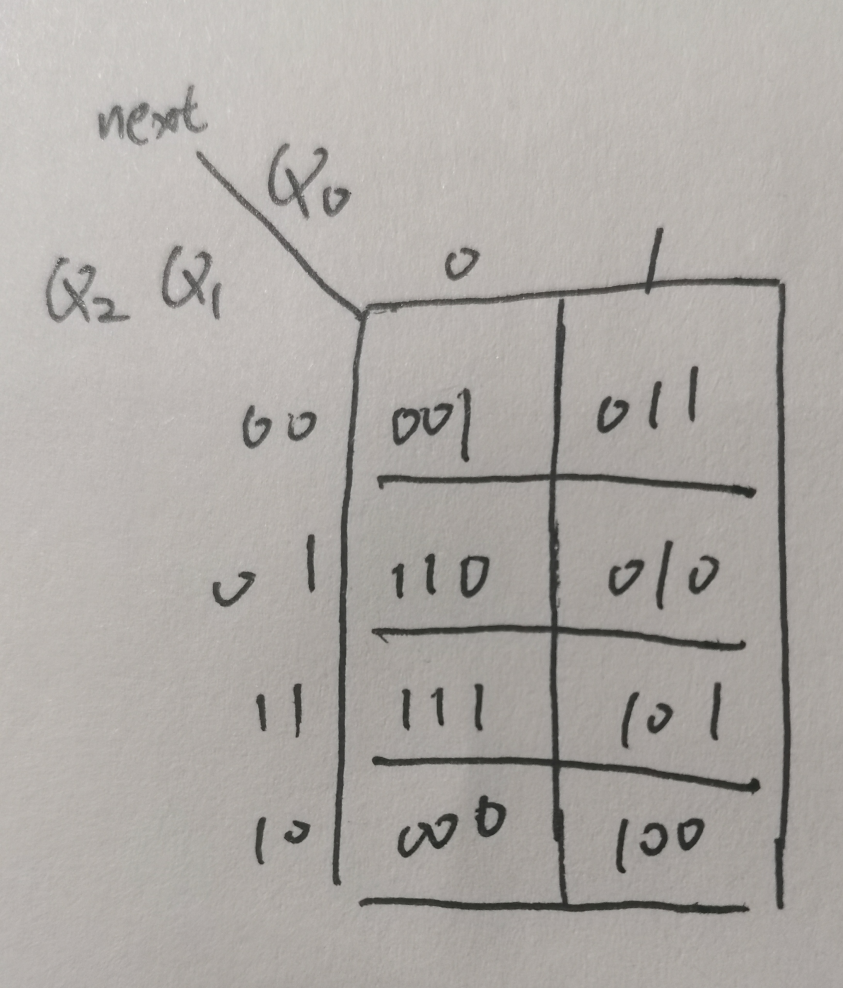 next
Q₀
Q₂ Q₁
0 1
00 001 011
01 110 010
11 111 101
10 000 100